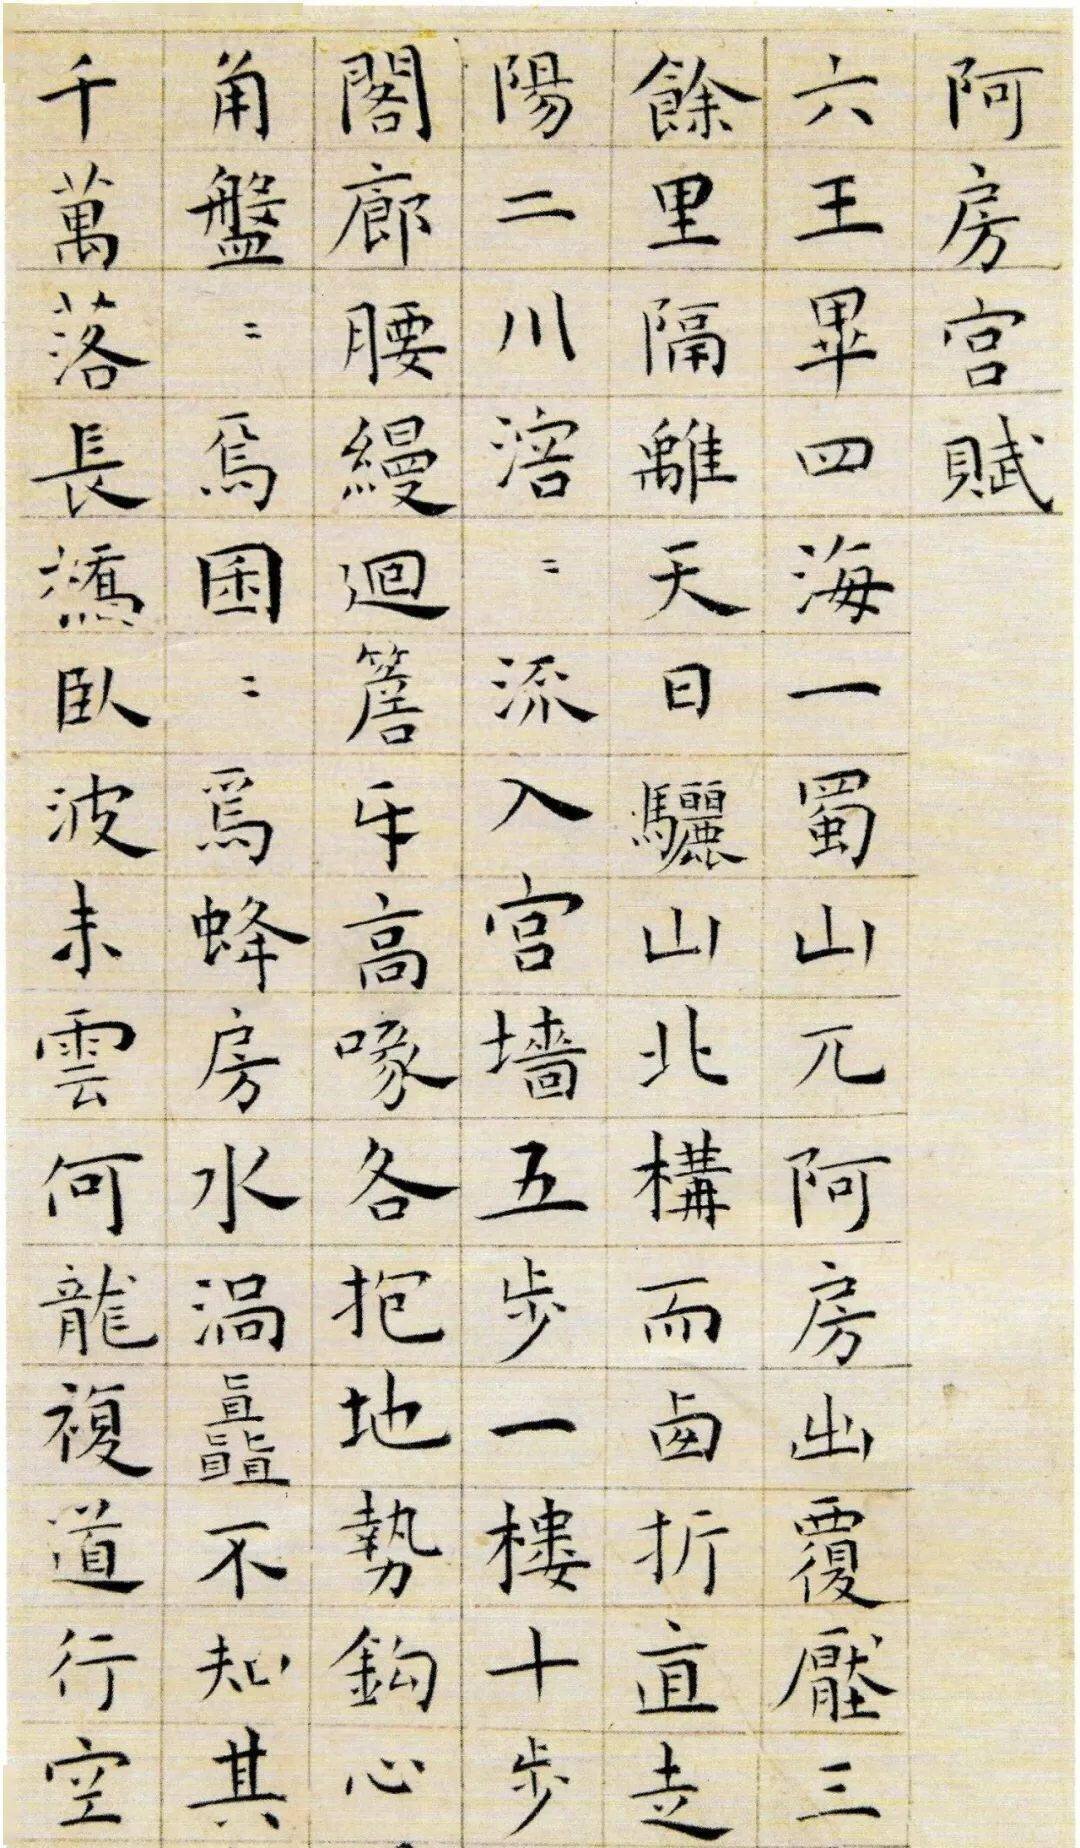 阿房宫賦
六王畢四海一蜀山兀阿房出覆壓三
餘里隔離天日驪山北構而西折直走
陽二川溶〻流入宫墻五步一樓十步
閣廊腰縵迴簷牙高啄各抱地勢鈎心
角盤〻焉囷〻焉蜂房水渦矗不知其
千萬落長橋臥波未雲何龍複道行空